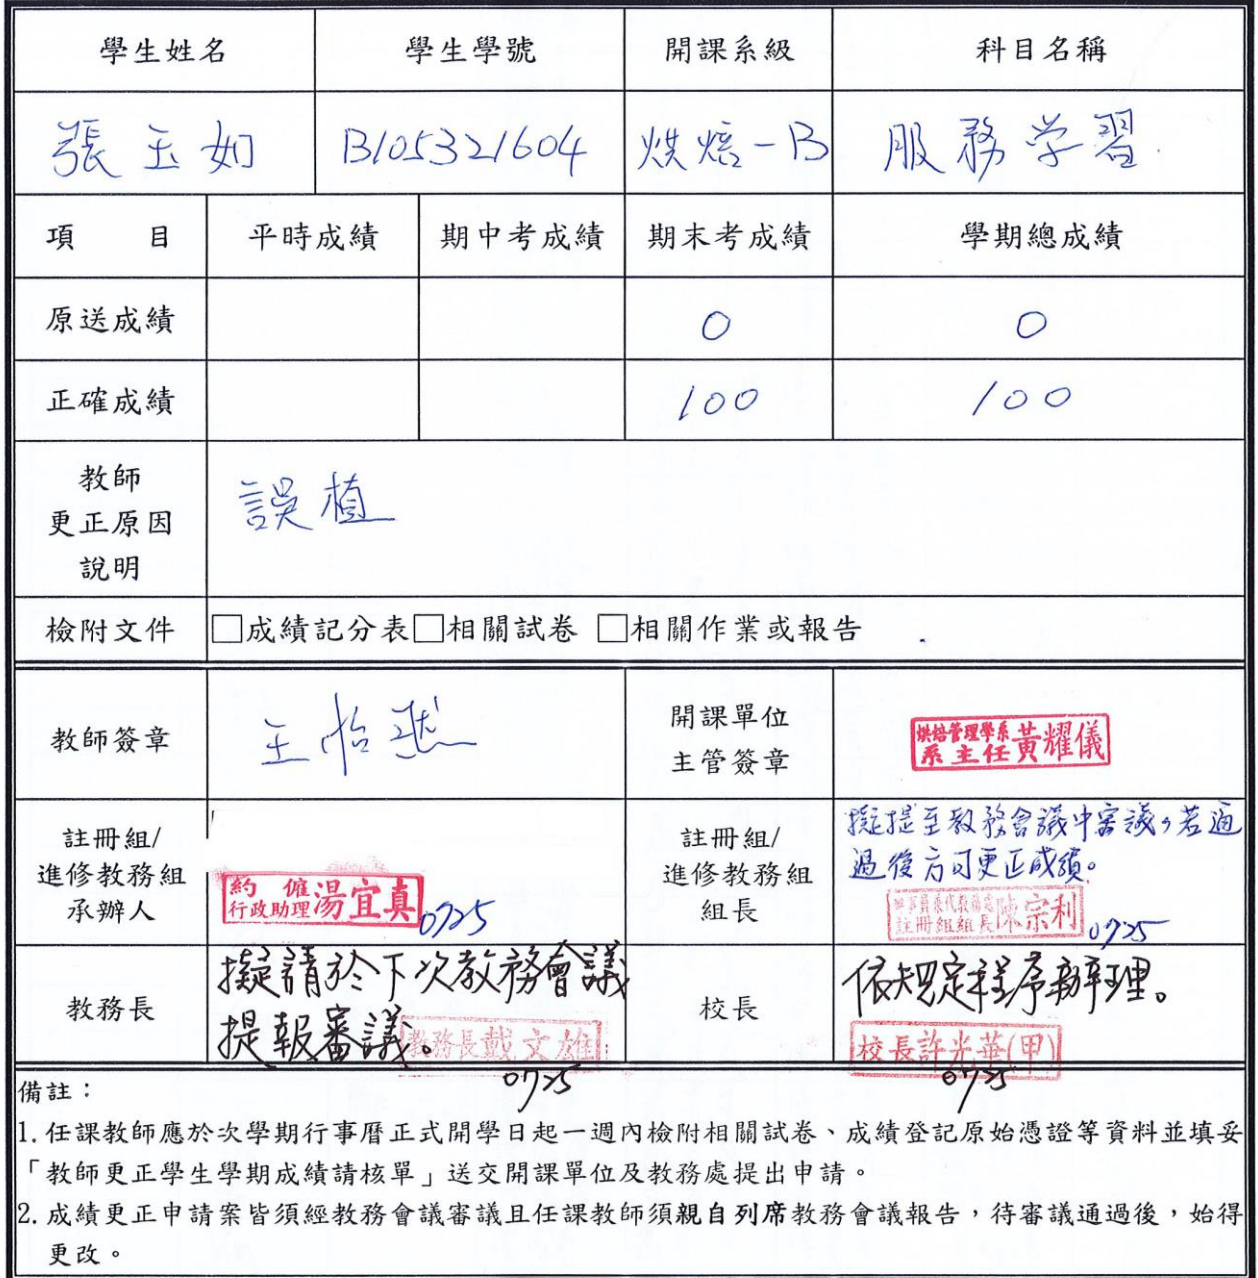 學生姓名 學生學號 開課系級 科目名稱
張玉如 B105321604 烘焙一B 服務学習
項 目 平時成績 期中考成績 期末考成績 學期總成績
原送成績 0 0
正確成績 100 100
教師
更正原因
說明
誤植
檢附文件 □成績記分表□相關試卷 □相關作業或報告
教師簽章
王怡
開課單位
主管簽章
烘焙管理學系
系主任黃耀儀
註冊組/
進修教務組
承辦人
約僱
行政助理湯宜真
0725
註冊組/
進修教務組
組長
擬提至教務會議中審議,若通
過後方可更正成績。
註冊組組長陳宗利
0725
教務長
擬請於下次教務會議
提報審議。
教務長戴文雄
0725
校長
依規定程序辦理。
校長許光華(甲)
0725
備註：
1.任課教師應於次學期行事曆正式開學日起一週內檢附相關試卷、成績登記原始憑證等資料並填妥
「教師更正學生學期成績請核單」送交開課單位及教務處提出申請。
2.成績更正申請案皆須經教務會議審議且任課教師須親自列席教務會議報告，待審議通過後，始得
更改。